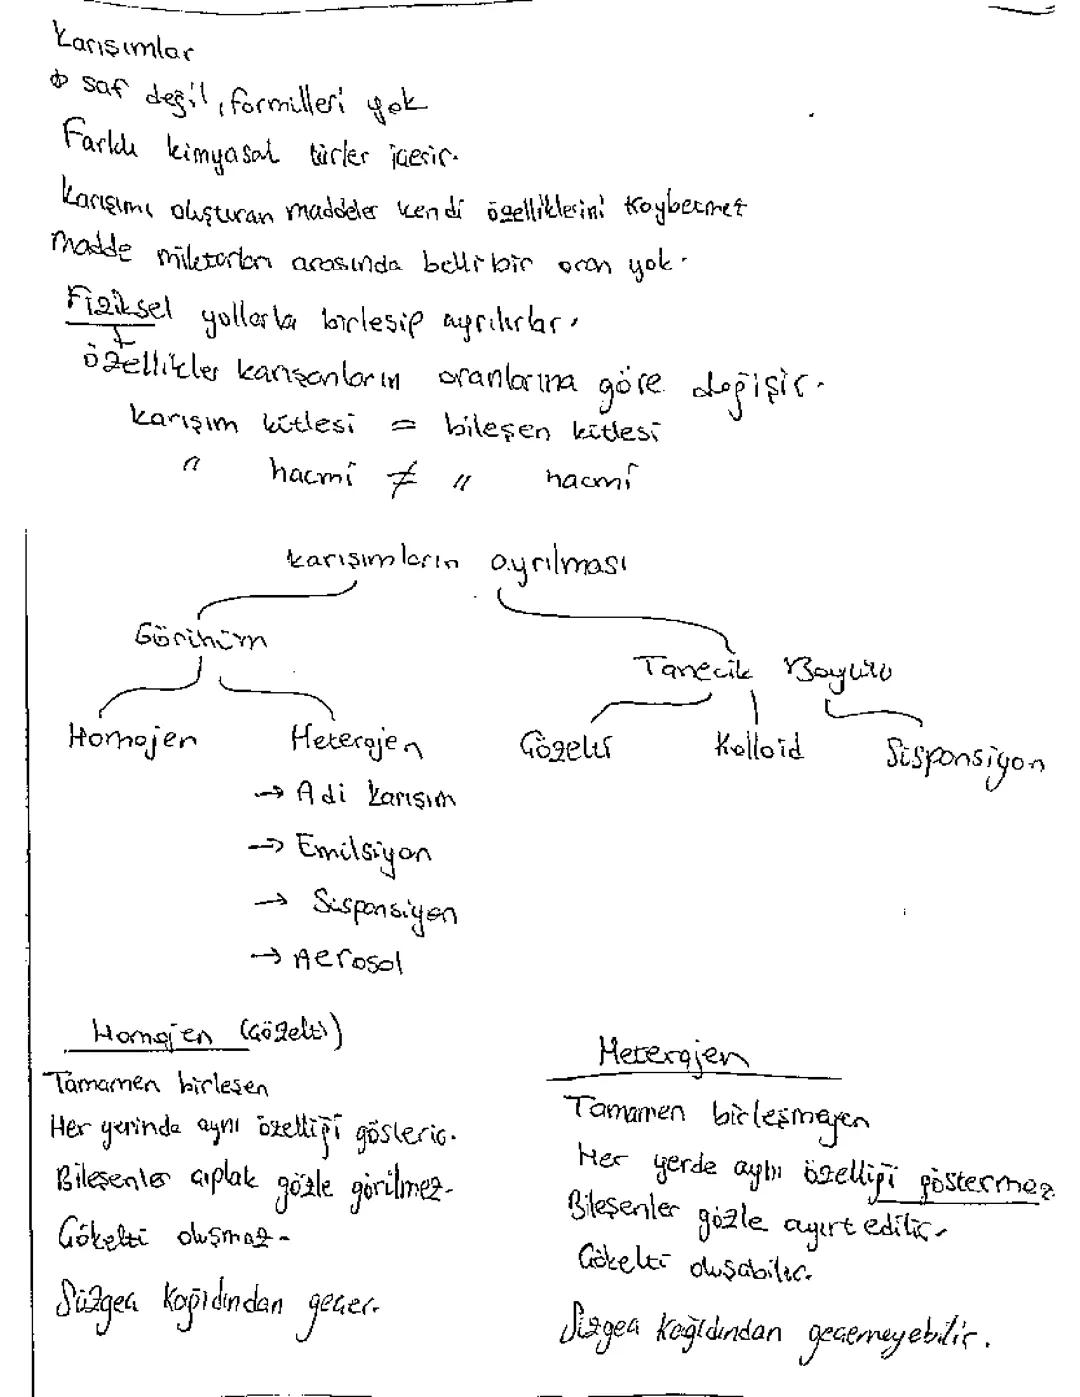 Karışımlar
saf değil, formülleri yok
Farklı kimyasal türler içerir.
Karışımı oluşturan maddeler kendi özelliklerini kaybetmez
Madde miktarları arasında belli bir oran yok.
Fiziksel yollarla birleşip ayrılırlar.
özellikler karışanların oranlarına göre değişir.
karışım kütlesi = bileşen kütlesi
" hacmi ≠ " hacmi
Karışımların ayrılması
Görünüm
Tanecik Boyutu
Homojen Heterojen Çözelti Kolloid Süspansiyon
→ Adi Karışım
→ Emülsiyon
→ Süspansiyon
→ Aerosol
Homojen (Çözelti)
Tamamen birleşen
Her yerinde aynı özelliği gösterir.
Bileşenler çıplak gözle görülmez.
Çökelti oluşmaz.
Süzgeç kağıdından geçer.
Heterojen
Tamamen birleşmeyen
Her yerde aynı özelliği göstermez
Bileşenler gözle ayırt edilir.
Çökelti oluşabilir.
Süzgeç kağıdından geçemeyebilir.